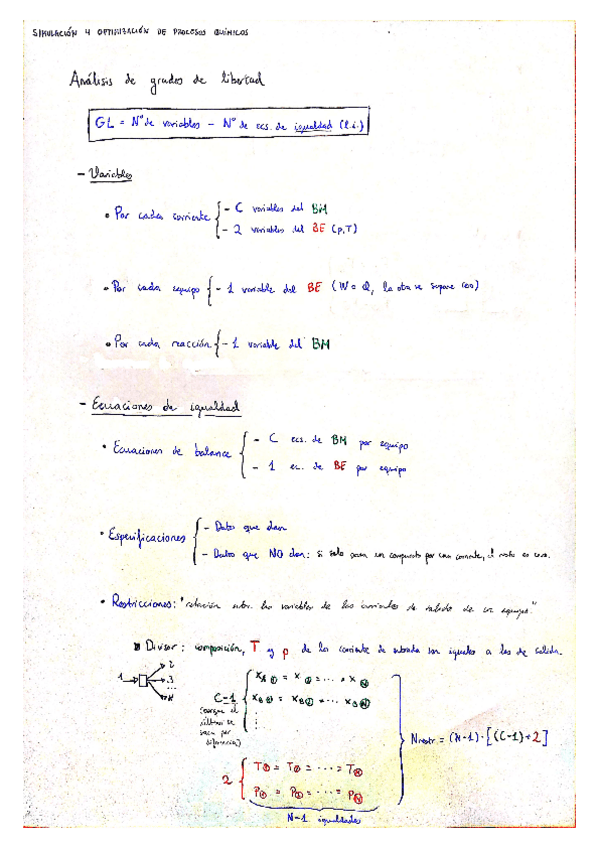 SIMULACIÓN Y OPTIMIZACIÓN DE PROCESOS QUÍMICOS
Análisis de grados de libertad
GL = Nº de variables - Nº de ecs. de igualdad (l.i.)
- Variables
• Por cada corriente { - C variables del BM
- 2 variables del BE (p,T)
• Por cada equipo { - 1 variable del BE (W o Q, la otra se supone cero)
• Por cada reacción { - 1 variable del BM
- Ecuaciones de igualdad
• Ecuaciones de balance { - C ecs. de BM por equipo
- 1 ec. de BE por equipo
• Especificaciones { - Datos que dan
- Datos que NO dan: si solo pasa un compuesto por una corriente, el resto es cero.
• Restricciones: "relación entre las variables de las corrientes de salida de un equipo."
Divisor: composición, T y p de la corriente de entrada son iguales a las de salida.
1 → 2
3
...
N
C-1 (porque el último se saca por diferencia) { x A① = x A② = ... = x AⓃ
x B① = x B② = ... x BⓃ
⋮
2 { T① = T② = ... = TⓃ
P① = P② = ... = PⓃ
N-1 igualdades
Nrestr = (N-1)·[(C-1)+2]